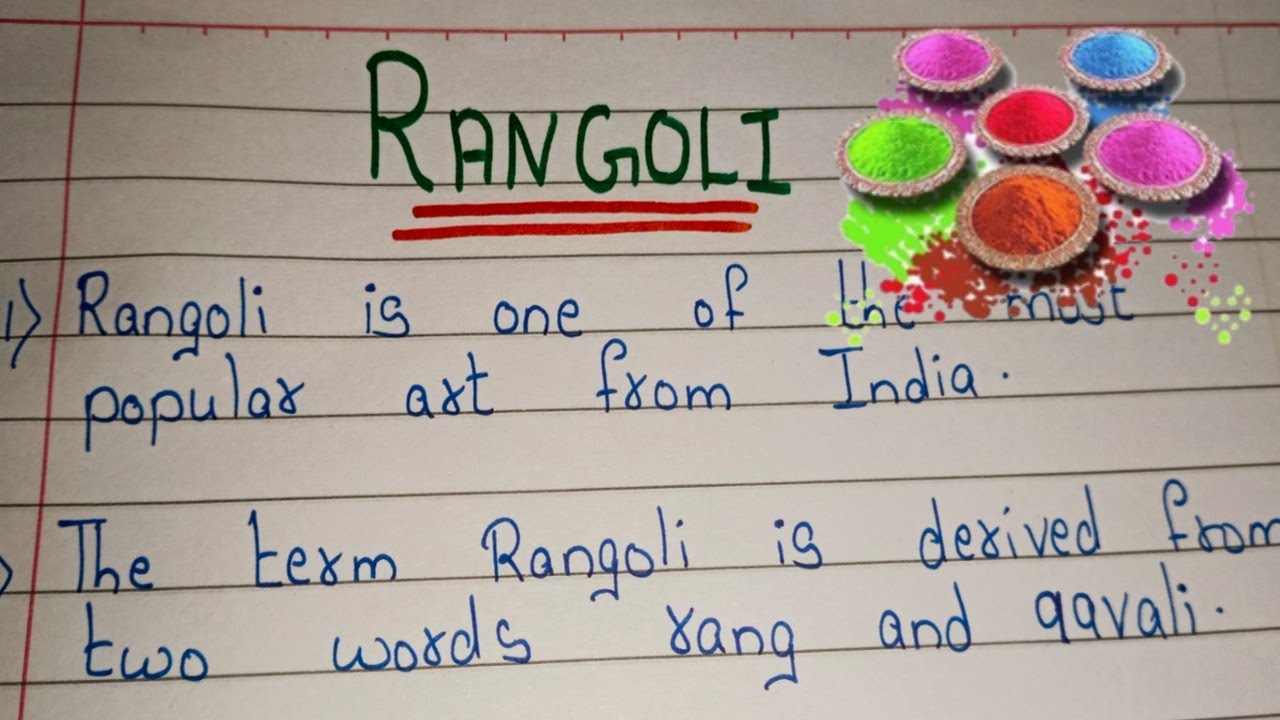 RANGOLI
1) Rangoli is one of the most
popular art from India.
) The term Rangoli is derived from
two words rang and aavali.